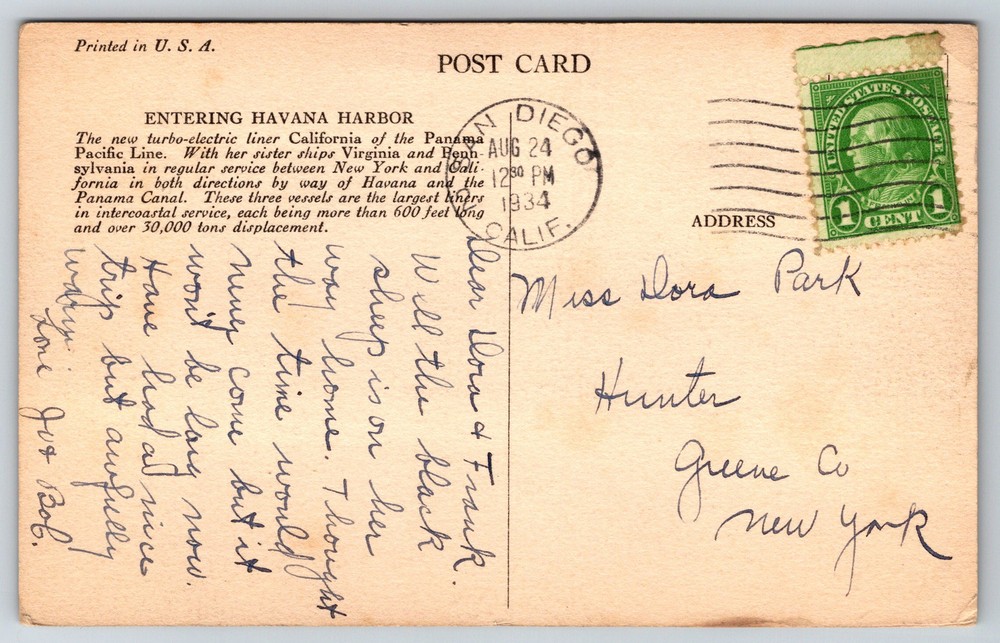 Printed in U. S. A.
POST CARD
ENTERING HAVANA HARBOR
The new turbo-electric liner California of the Panama
Pacific Line. With her sister ships Virginia and Penn-
sylvania in regular service between New York and Cali-
fornia in both directions by way of Havana and the
Panama Canal. These three vessels are the largest liners
in intercoastal service, each being more than 600 feet long
and over 30,000 tons displacement.
SAN DIEGO
AUG 24
12 30 PM
1934
CALIF.
UNITED STATES POSTAGE
1 CENT 1
ADDRESS
Miss Dora Park
Hunter
Greene Co
New York
Dear Dora & Frank.
Well the black
sheep is on her
way home. Thought
the time would
never come but it
won't be long now.
Have had a nice
trip but awfully
warm.
Love
Bob.